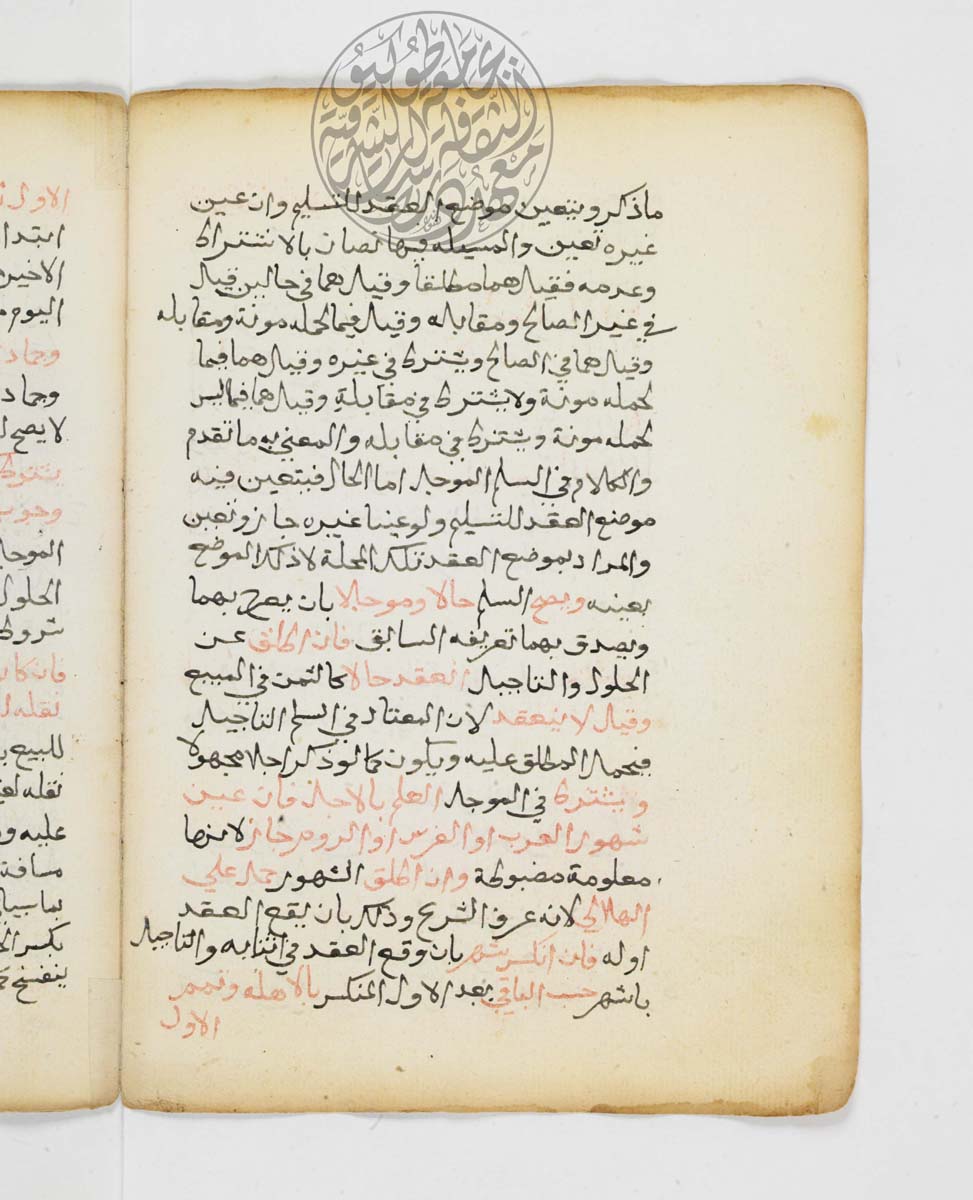 ماذكر ويتعين موضع العقد للتسليم وان عين
غيره تعين والمسيله فيها نصان بالاشتراط
وعدمه فقيل هما مطلقا وقيل هما في حالين قيل
في غير الصالح ومقابله وقيل فيما لحمله مونة ومقابله
وقيل هما في الصالح ويشترط في غيره وقيل هما فيما
لحمله مونة ولا يشترط في مقابله وقيل هما فيما ليس
لحمله مونة ويشترط في مقابله والمعني به ما تقدم
والكلام في السلم الموجل اما الحال فيتعين فيه
موضع العقد للتسليم ولو عينا غيره جاز وتعين
والمراد بموضع العقد تلك المحلة لا ذلك الموضع
بعينه ويصح السلم حالا وموجلا بان يصرح بهما
ويصدق بهما تعريفه السابق فان اطلق عن
الحلول والتاجيل انعقد حالا كالثمن في المبيع
وقيل لا ينعقد لان المعتاد في السلم التاجيل
فيحمل المطلق عليه ويكون كما لو ذكر اجلا مجهولا
ويشترط في الموجل العلم بالاجل فان عين
شهور العرب او الفرس او الروم جاز لانها
معلومة مضبوطة وان اطلق الشهور حمل علي
الهلالي لانه عرف الشرع وذلك بان يقع العقد
اوله فان انكسر شهر بان وقع العقد في اثنايه والتاجيل
باشهر حسب الباقي بعد الاول المنكسر بالاهله وتمم
الاول
الاول
ابتدا
الاخير
اليوم
وجماد
وجماد
لا يصح
يشترط
وجوب
الموجل
الحلول
شروط
فان كان
نقله
للبيع
نقله
عليه
مسافة
بكسر
ينفسخ